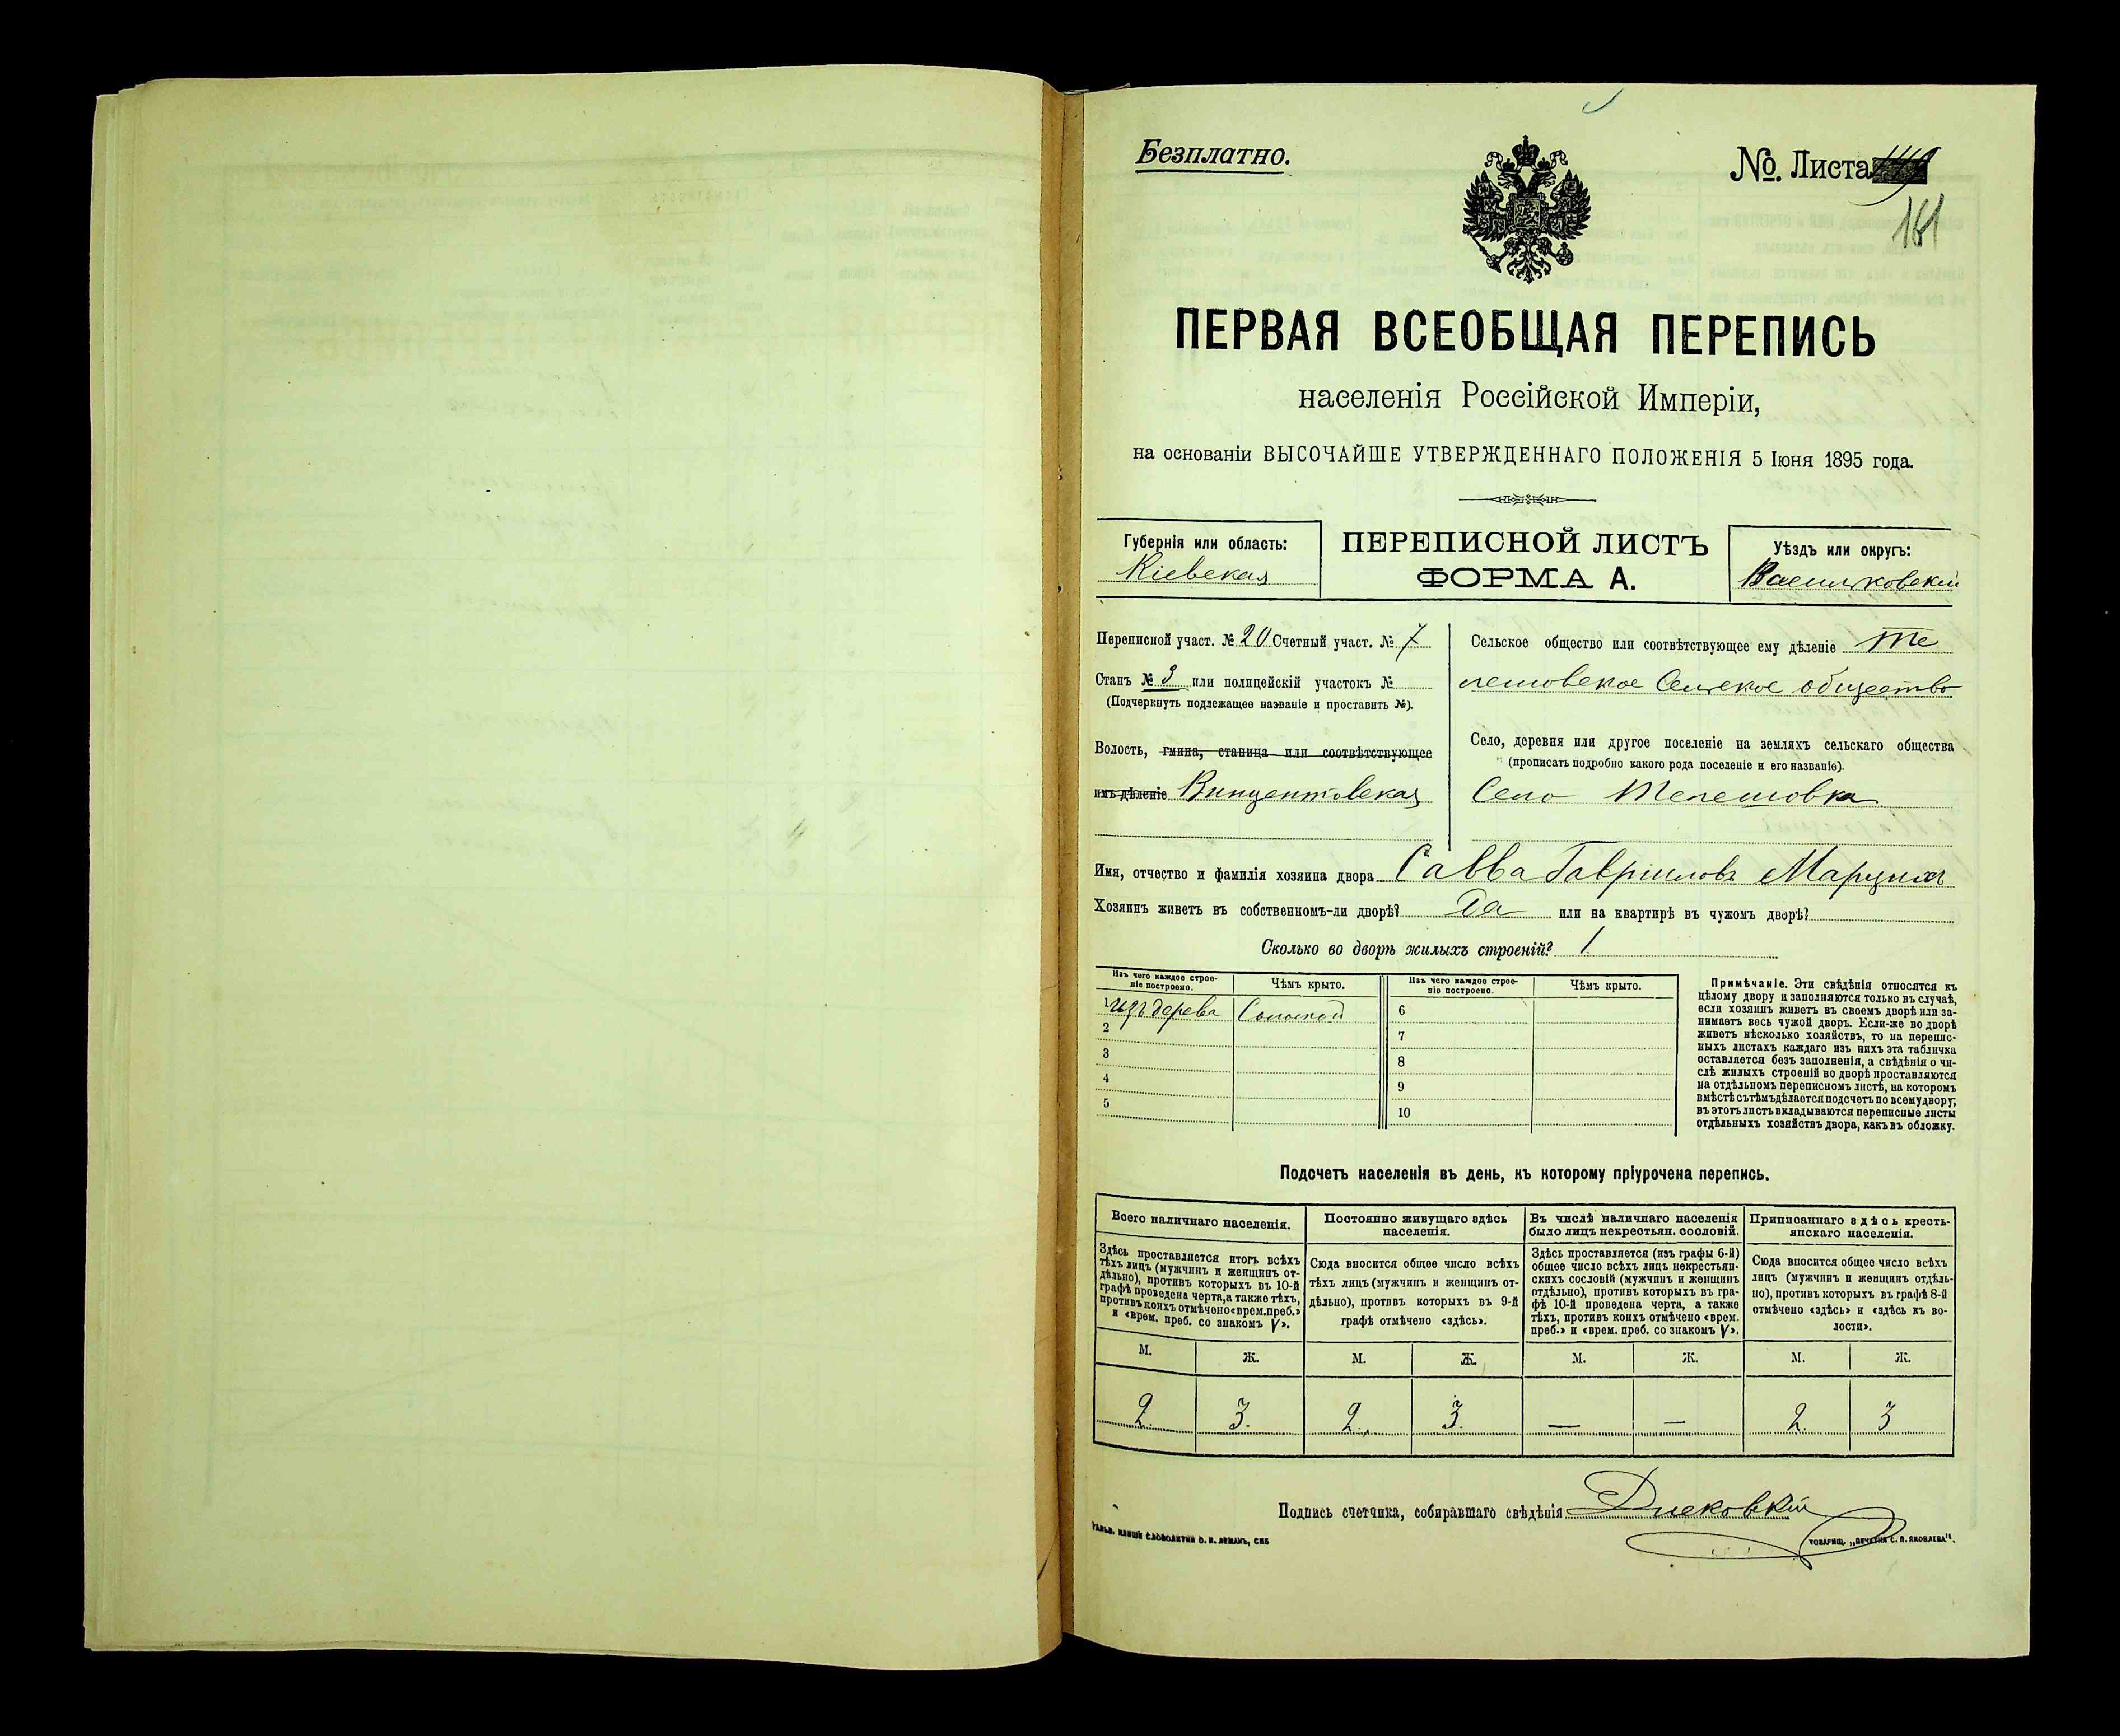 Безплатно.
№. Листа
161
ПЕРВАЯ ВСЕОБЩАЯ ПЕРЕПИСЬ
населенія Россійской Имперіи,
на основаніи ВЫСОЧАЙШЕ УТВЕРЖДЕННАГО ПОЛОЖЕНІЯ 5 Іюня 1895 года.
Губернія или область:
Кіевская
ПЕРЕПИСНОЙ ЛИСТЪ
ФОРМА А.
Уѣздъ или округъ:
Васильковскій
Переписной участ. № 20 Счетный участ. № 7
Станъ № 3 или полицейскій участокъ №
(Подчеркнуть подлежащее названіе и проставить №).
Волость, гмина, станица или соотвѣтствующее
имъ дѣленіе Винцентовская
Сельское общество или соотвѣтствующее ему дѣленіе Те
лешовское Сельское общество
Село, деревня или другое поселеніе на земляхъ сельскаго общества
(прописать подробно какого рода поселеніе и его названіе).
Село Телешовка
Имя, отчество и фамилія хозяина двора Савва Гавриилов
Хозяинъ живетъ въ собственномъ-ли дворѣ? Да или на квартирѣ въ чужомъ дворѣ?
Сколько во дворѣ жилыхъ строеній? 1
Изъ чего каждое строе-
ніе построено.
Чѣмъ крыто.
Изъ чего каждое строе-
ніе построено.
Чѣмъ крыто.
1 изъ дерева Соломой
2
3
4
5
6
7
8
9
10
Примѣчаніе. Эти свѣдѣнія относятся къ
цѣлому двору и заполняются только въ случаѣ,
если хозяинъ живетъ въ своемъ дворѣ или за-
нимаетъ весь чужой дворъ. Если-же во дворѣ
живетъ нѣсколько хозяйствъ, то на перепис-
ныхъ листахъ каждаго изъ нихъ эта табличка
оставляется безъ заполненія, а свѣдѣнія о чи-
слѣ жилыхъ строеній во дворѣ проставляются
на отдѣльномъ переписномъ листѣ, на которомъ
вмѣстѣ съ тѣмъ дѣлается подсчетъ по всему двору;
въ этотъ листъ вкладываются переписные листы
отдѣльныхъ хозяйствъ двора, какъ въ обложку.
Подсчетъ населенія въ день, къ которому пріурочена перепись.
Всего наличнаго населенія.
Здѣсь проставляется итогъ всѣхъ
тѣхъ лицъ (мужчинъ и женщинъ от-
дѣльно), противъ которыхъ въ 10-й
графѣ проведена черта, а также тѣхъ,
противъ коихъ отмѣчено «врем. преб.»
и «врем. преб. со знакомъ V».
Постоянно живущаго здѣсь
населенія.
Сюда вносится общее число всѣхъ
тѣхъ лицъ (мужчинъ и женщинъ от-
дѣльно), противъ которыхъ въ 9-й
графѣ отмѣчено «здѣсь».
Въ числѣ наличнаго населенія
было лицъ некрестьян. сословій.
Здѣсь проставляется (изъ графы 6-й)
общее число всѣхъ лицъ некрестьян-
скихъ сословій (мужчинъ и женщинъ
отдѣльно), противъ которыхъ въ гра-
фѣ 10-й проведена черта, а также
тѣхъ, противъ коихъ отмѣчено «врем.
преб.» и «врем. преб. со знакомъ V».
Приписаннаго здѣсь кресть-
янскаго населенія.
Сюда вносится общее число всѣхъ
лицъ (мужчинъ и женщинъ отдѣль-
но), противъ которыхъ въ графѣ 8-й
отмѣчено «здѣсь» и «здѣсь къ во-
лости».
М. Ж. М. Ж. М. Ж. М. Ж.
2. 3. 2. 3. — — 2 3
Подпись счетчика, собиравшаго свѣдѣнія
ТОВАРИЩ. „ПЕЧАТНЯ С. П. ЯКОВЛЕВА".